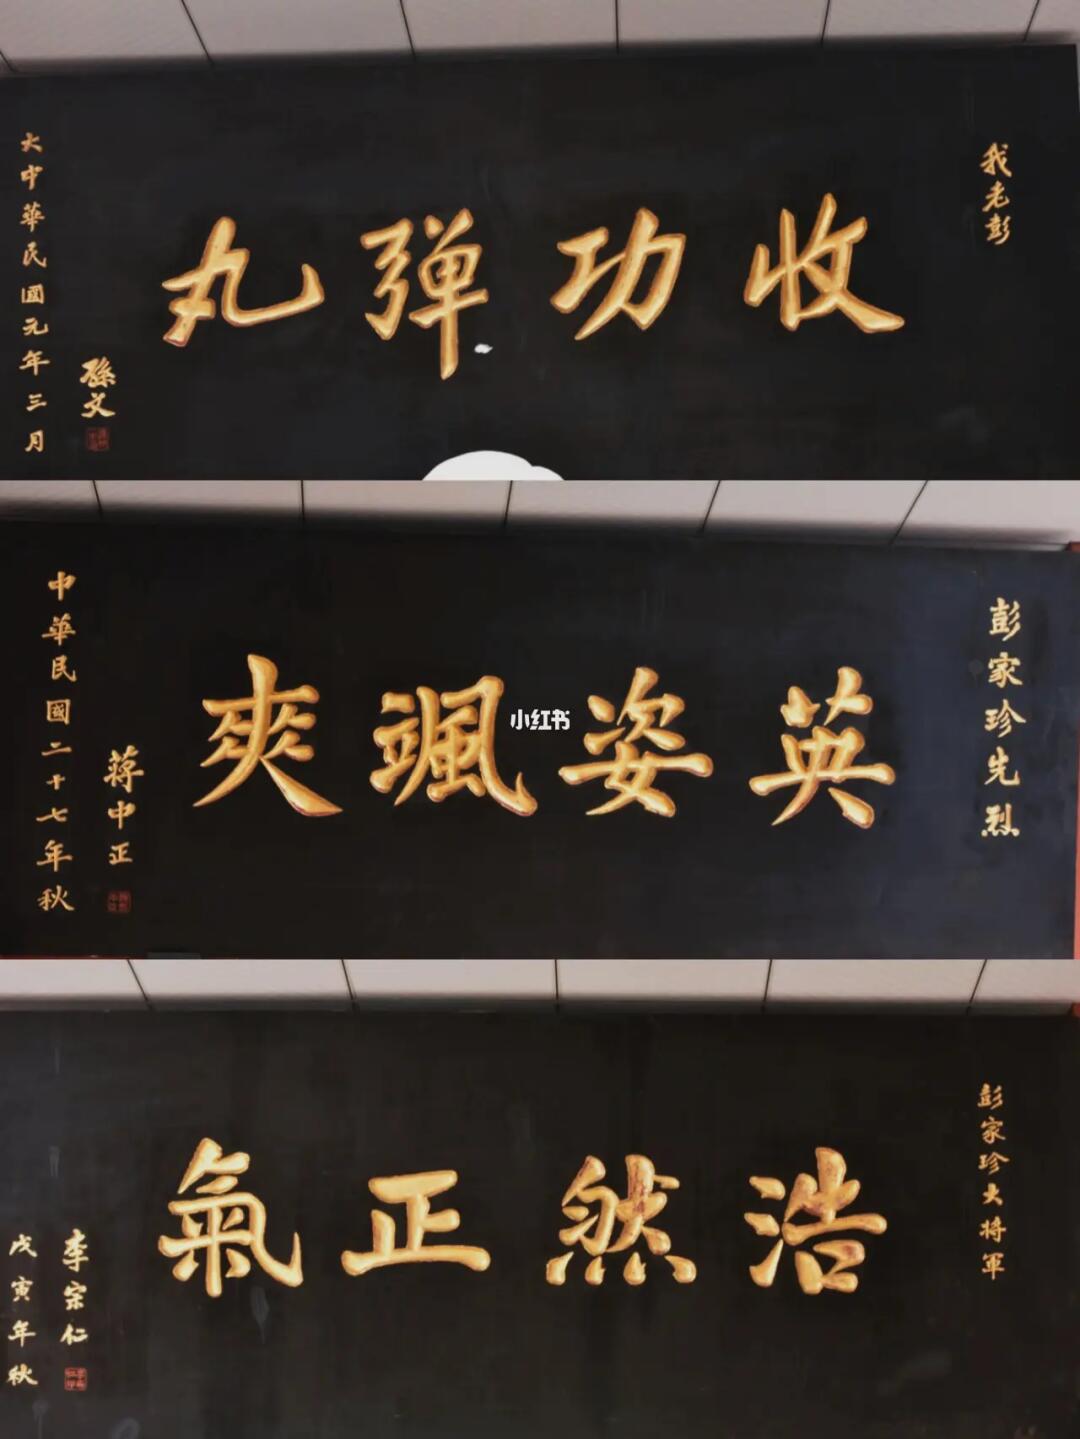 我老彭
收功弹丸
孫文
大中華民國元年三月
彭家珍先烈
英姿颯爽
蒋中正
中華民國二十七年秋
小红书
彭家珍大将軍
浩然正氣
李宗仁
戊寅年秋